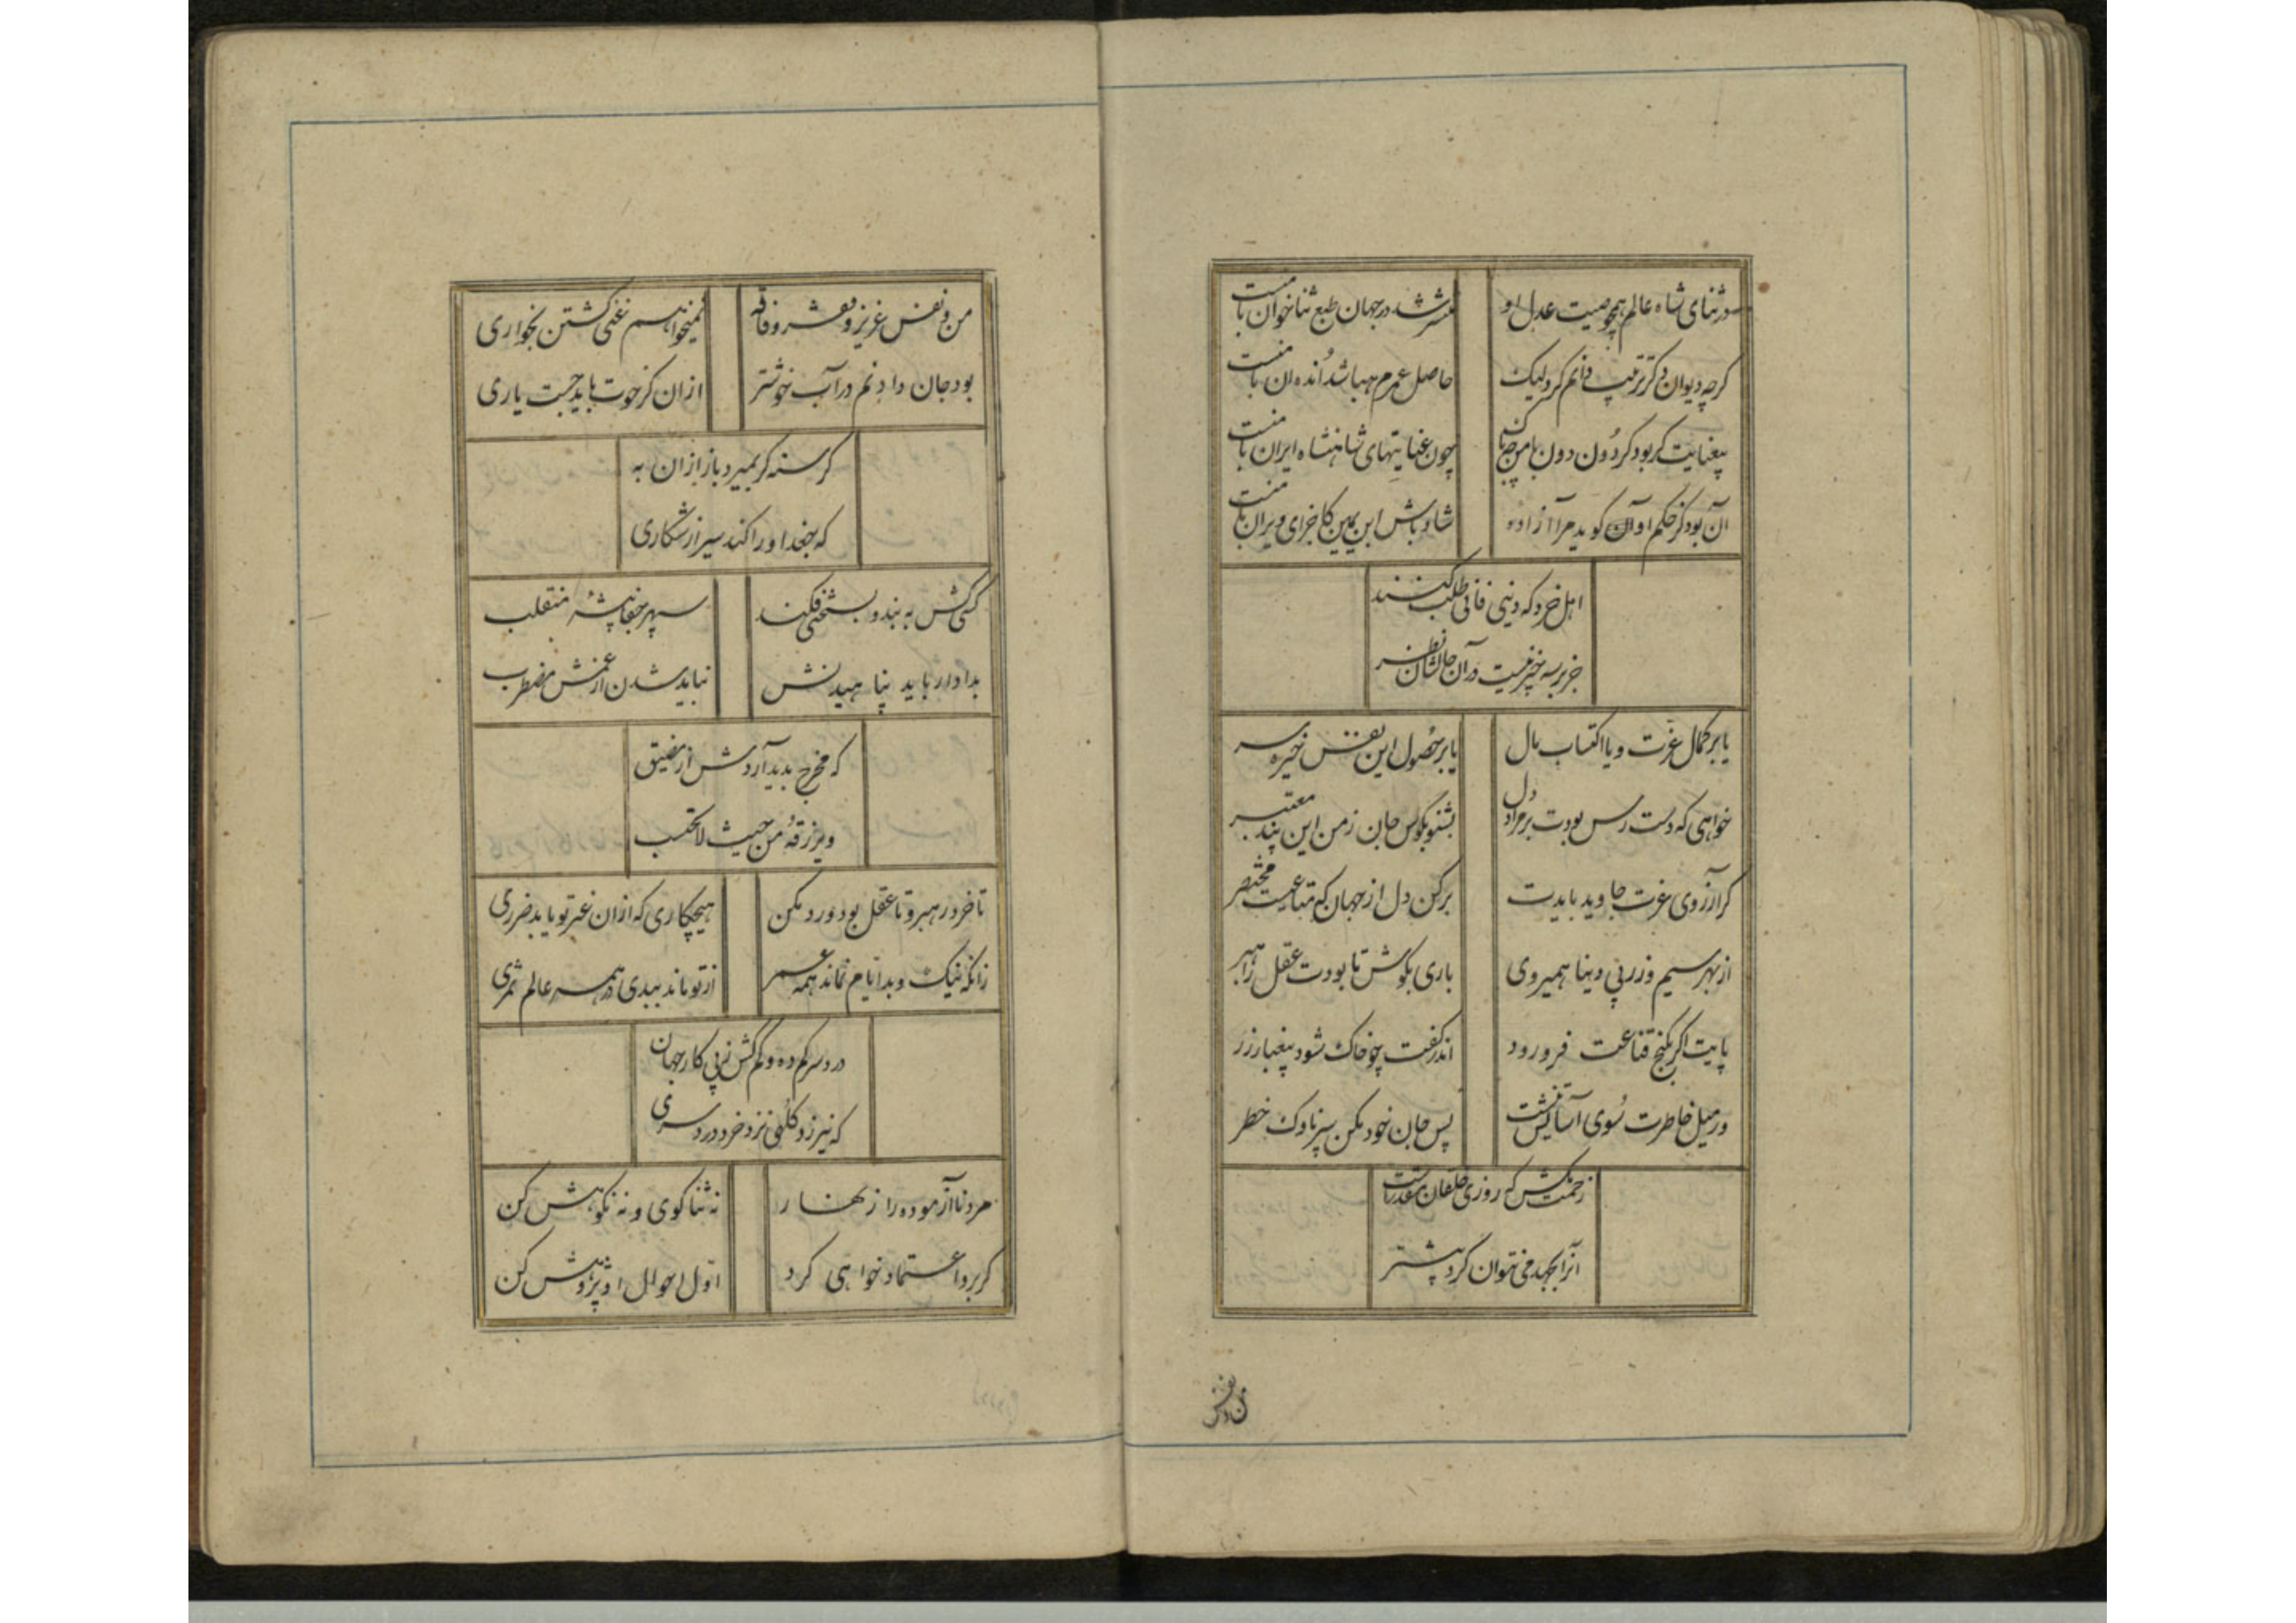 در ثنای شاه عالم همچو صیت عدل او
منتشر شد در جهان طبع ثناخوان با منست
گرچه دیوان دگر ترتیب دانم کرد لیک
حاصل عمرم هبا شد اُنده آن با منست
بیعنایت گر بود گردُون دون با من چه باک
چون عنایتهای شاهنشاه ایران با منست
آن بود کز حکم او آن گوید مرا آزاده
شاد باش ابن یمین کاجزای ویران با منست
اهل خرد که دنیی فانی طلب کنند
جز بر سه چیز نیست در آن حال‌شان نظر
یا بر کمال عزت و یا اکتساب مال
یا بر حصُول این نفس خیره سر
خواهی که دست رس بودت بر مراد دل
بشنو بگوش جان ز من این پند معتبر
گر آرزوی عزت جاوید بایدت
برکن دل از جهان که متاعیست مختصر
از بهر سیم و زر پی دنیا همیروی
باری بگوش تا بودت عقل راهبر
پایت اگر بگنج قناعت فرو رود
اندر کفت چو خاک شود بیغبار زر
ور میل خاطرت سُوی آسایشست
پس جان خود مکن سپر ناوک خطر
زحمت مکش که روزی خلقان مقدرست
آنرا بجهد می نتوان کرد بیشتر
من و نفس
من و نفس عزیز و فقر و فاقه
نمیخواهم غنی گشتن بخواری
بود جان دادنم در آب خوشتر
از آن کز حوت باید جست یاری
گرسنه گر بمیرد باز از آن به
که جغد او را کند سیر از شکاری
کسی کش به بند و بسختی فکند
سپهر جفا پیشهٔ منقلب
بدادار باید پناهیدنش
نباید شدن از غمش مضطرب
که مخرج پدید آردش از مضیق
ویرزقهُ من حیث لا یحتسب
تا خرد رهبر و تا عقل بود ورد مکن
هیچکاری که از آن غیر تو یابد ضرری
زانکه نیک و بد ایام نماند همه عمر
از تو ماند ببدی در همه عالم ثمری
درد سر کم ده و کم کش ز پی کار جهان
که نیرزد کلهی نزد خرد درد سری
مرد ناآزموده را زنهار
نه ثنا گوی و نه نکوهش کن
گر برو اعتماد خواهی کرد
اوّل احوال او پژوهش کن